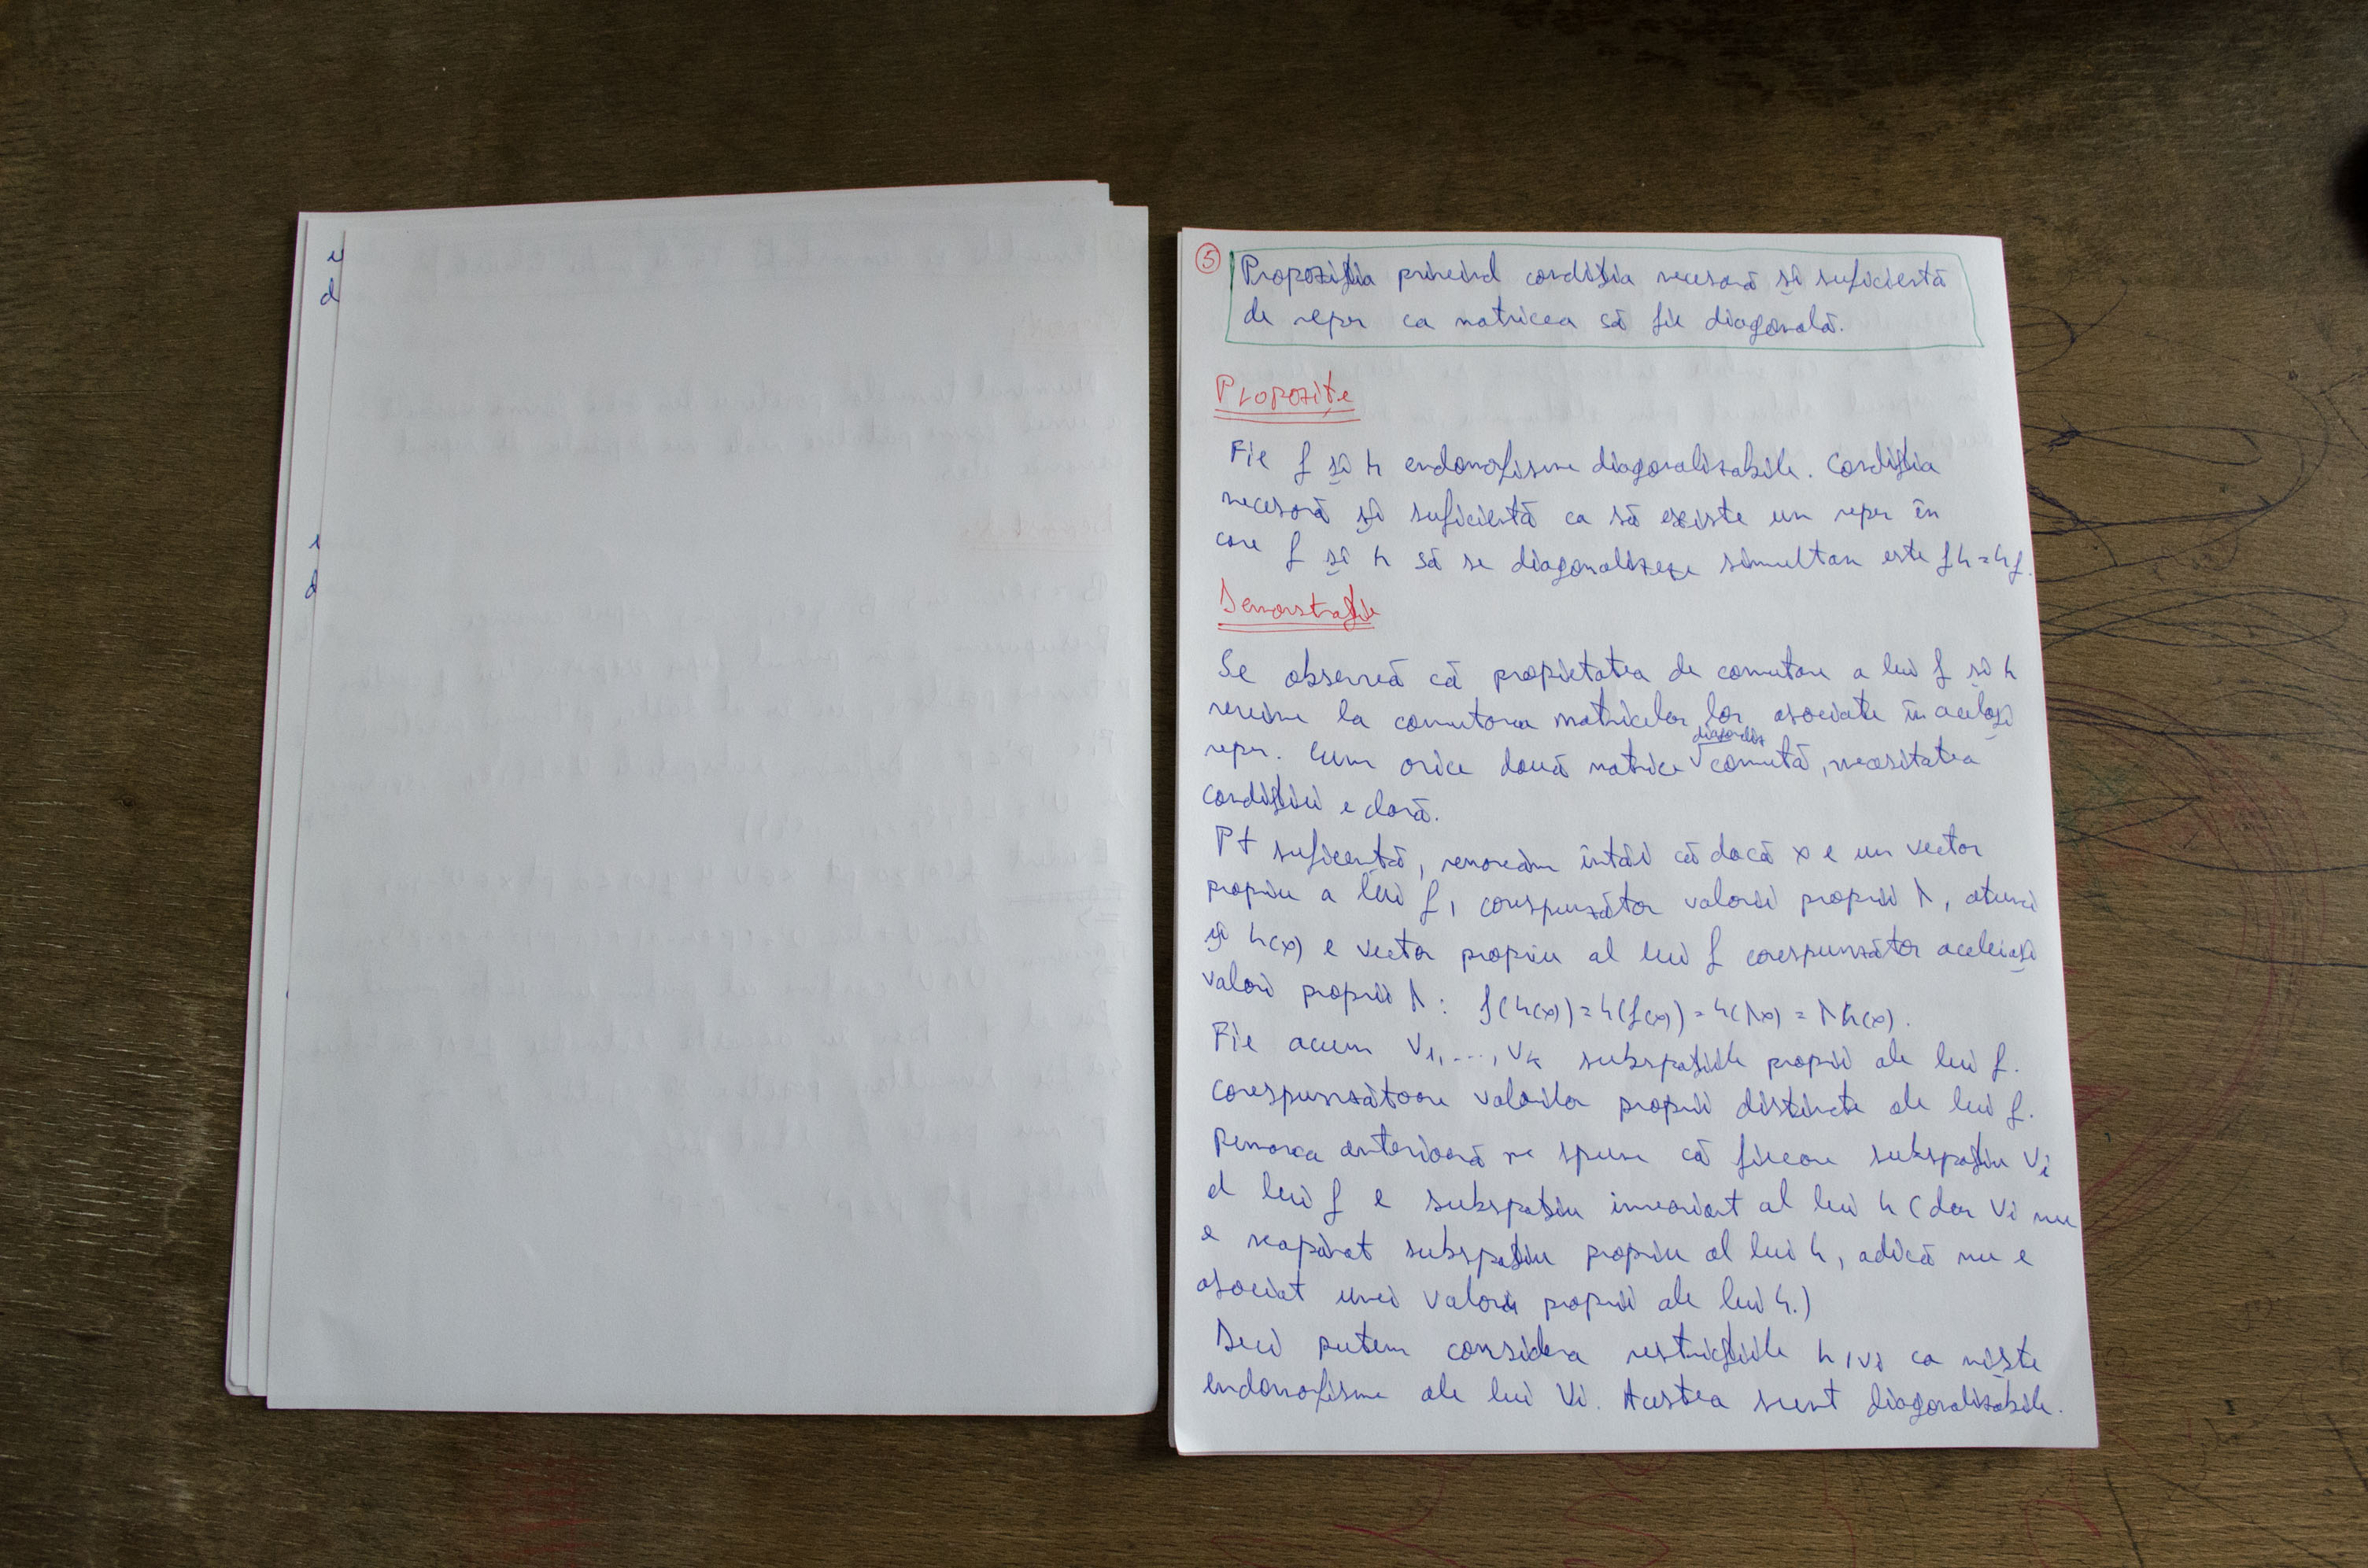 u
d
i
d
5
Propoziția privind condiția necesară și suficientă
de reper ca matricea să fie diagonală.
Propoziție
Fie f și h endomofisme diagonalizabile. Condiția
necesară și suficientă ca să existe un reper în
care f și h să se diagonalizeze simultan este fh=hf.
Demonstrație
Se observă că proprietatea de comutare a lui f și h
revine la comutarea matricelor lor asociate în același
reper. Cum orice două matrice diagonale comută, necesitatea
condiției e clară.
Pt suficentă, remarcăm întâi că dacă x e un vector
propriu a lui f, corespunzător valorii proprii λ, atunci
și h(x) e vector propriu al lui f corespunzător aceleiași
valori proprii λ: f(h(x))=h(f(x))=h(λx)=λh(x).
Fie acum V1,...,Vk subspațiile proprii ale lui f.
corespunzătoare valorilor proprii distincte ale lui f.
Remarca anterioară ne spune că fiecare subspațiu Vi
al lui f e subspațiu invariant al lui h (dar Vi nu
e neapărat subspațiu propriu al lui h, adică nu e
asociat unei valori proprii ale lui h.)
Deci putem considera restricțiile h|Vi ca niște
endomofisme ale lui Vi. Acestea sunt diagonalizabile.